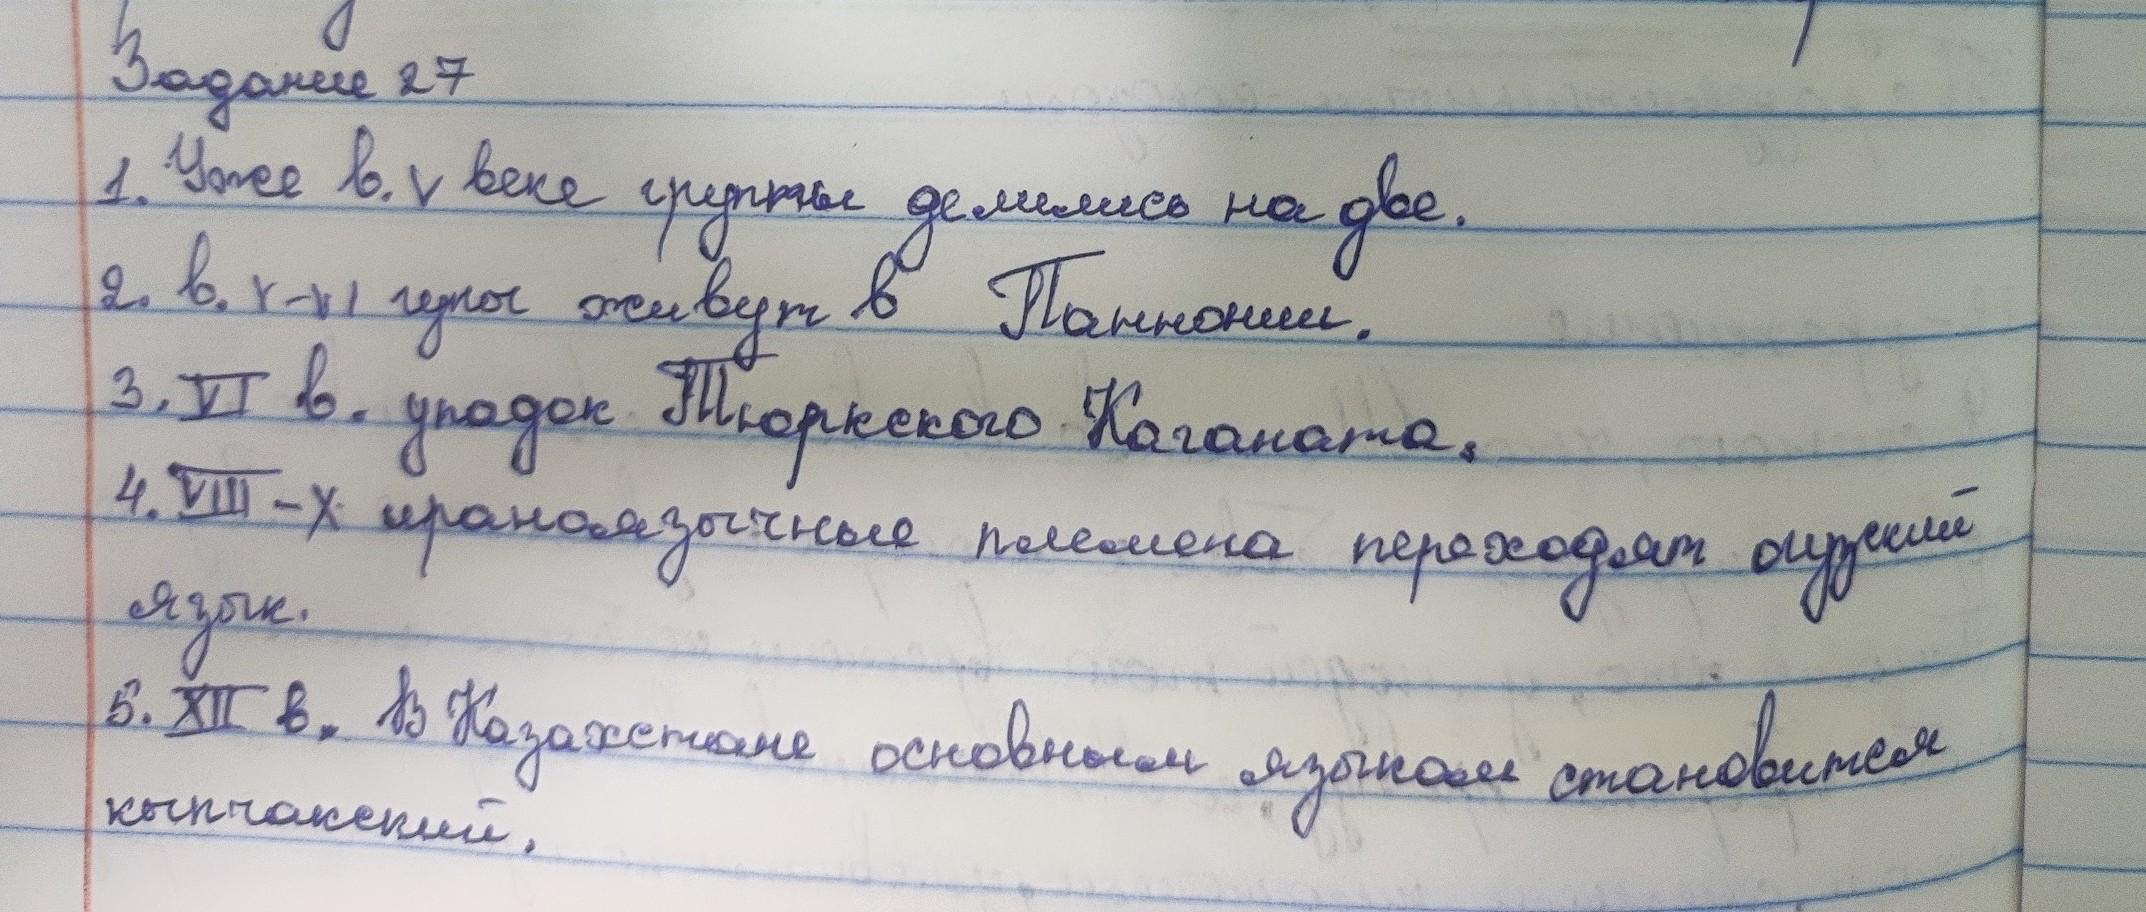 Задание 27
1. Уже в. V веке группы делились на две.
2. в. V-VI гунны живут в Паннонии.
3. VI в. упадок Тюркского Каганата.
4. VIII-X ираноязычные племена переходят огузский
язык.
5. XII в. В Казахстане основным языком становится
кыпчакский.